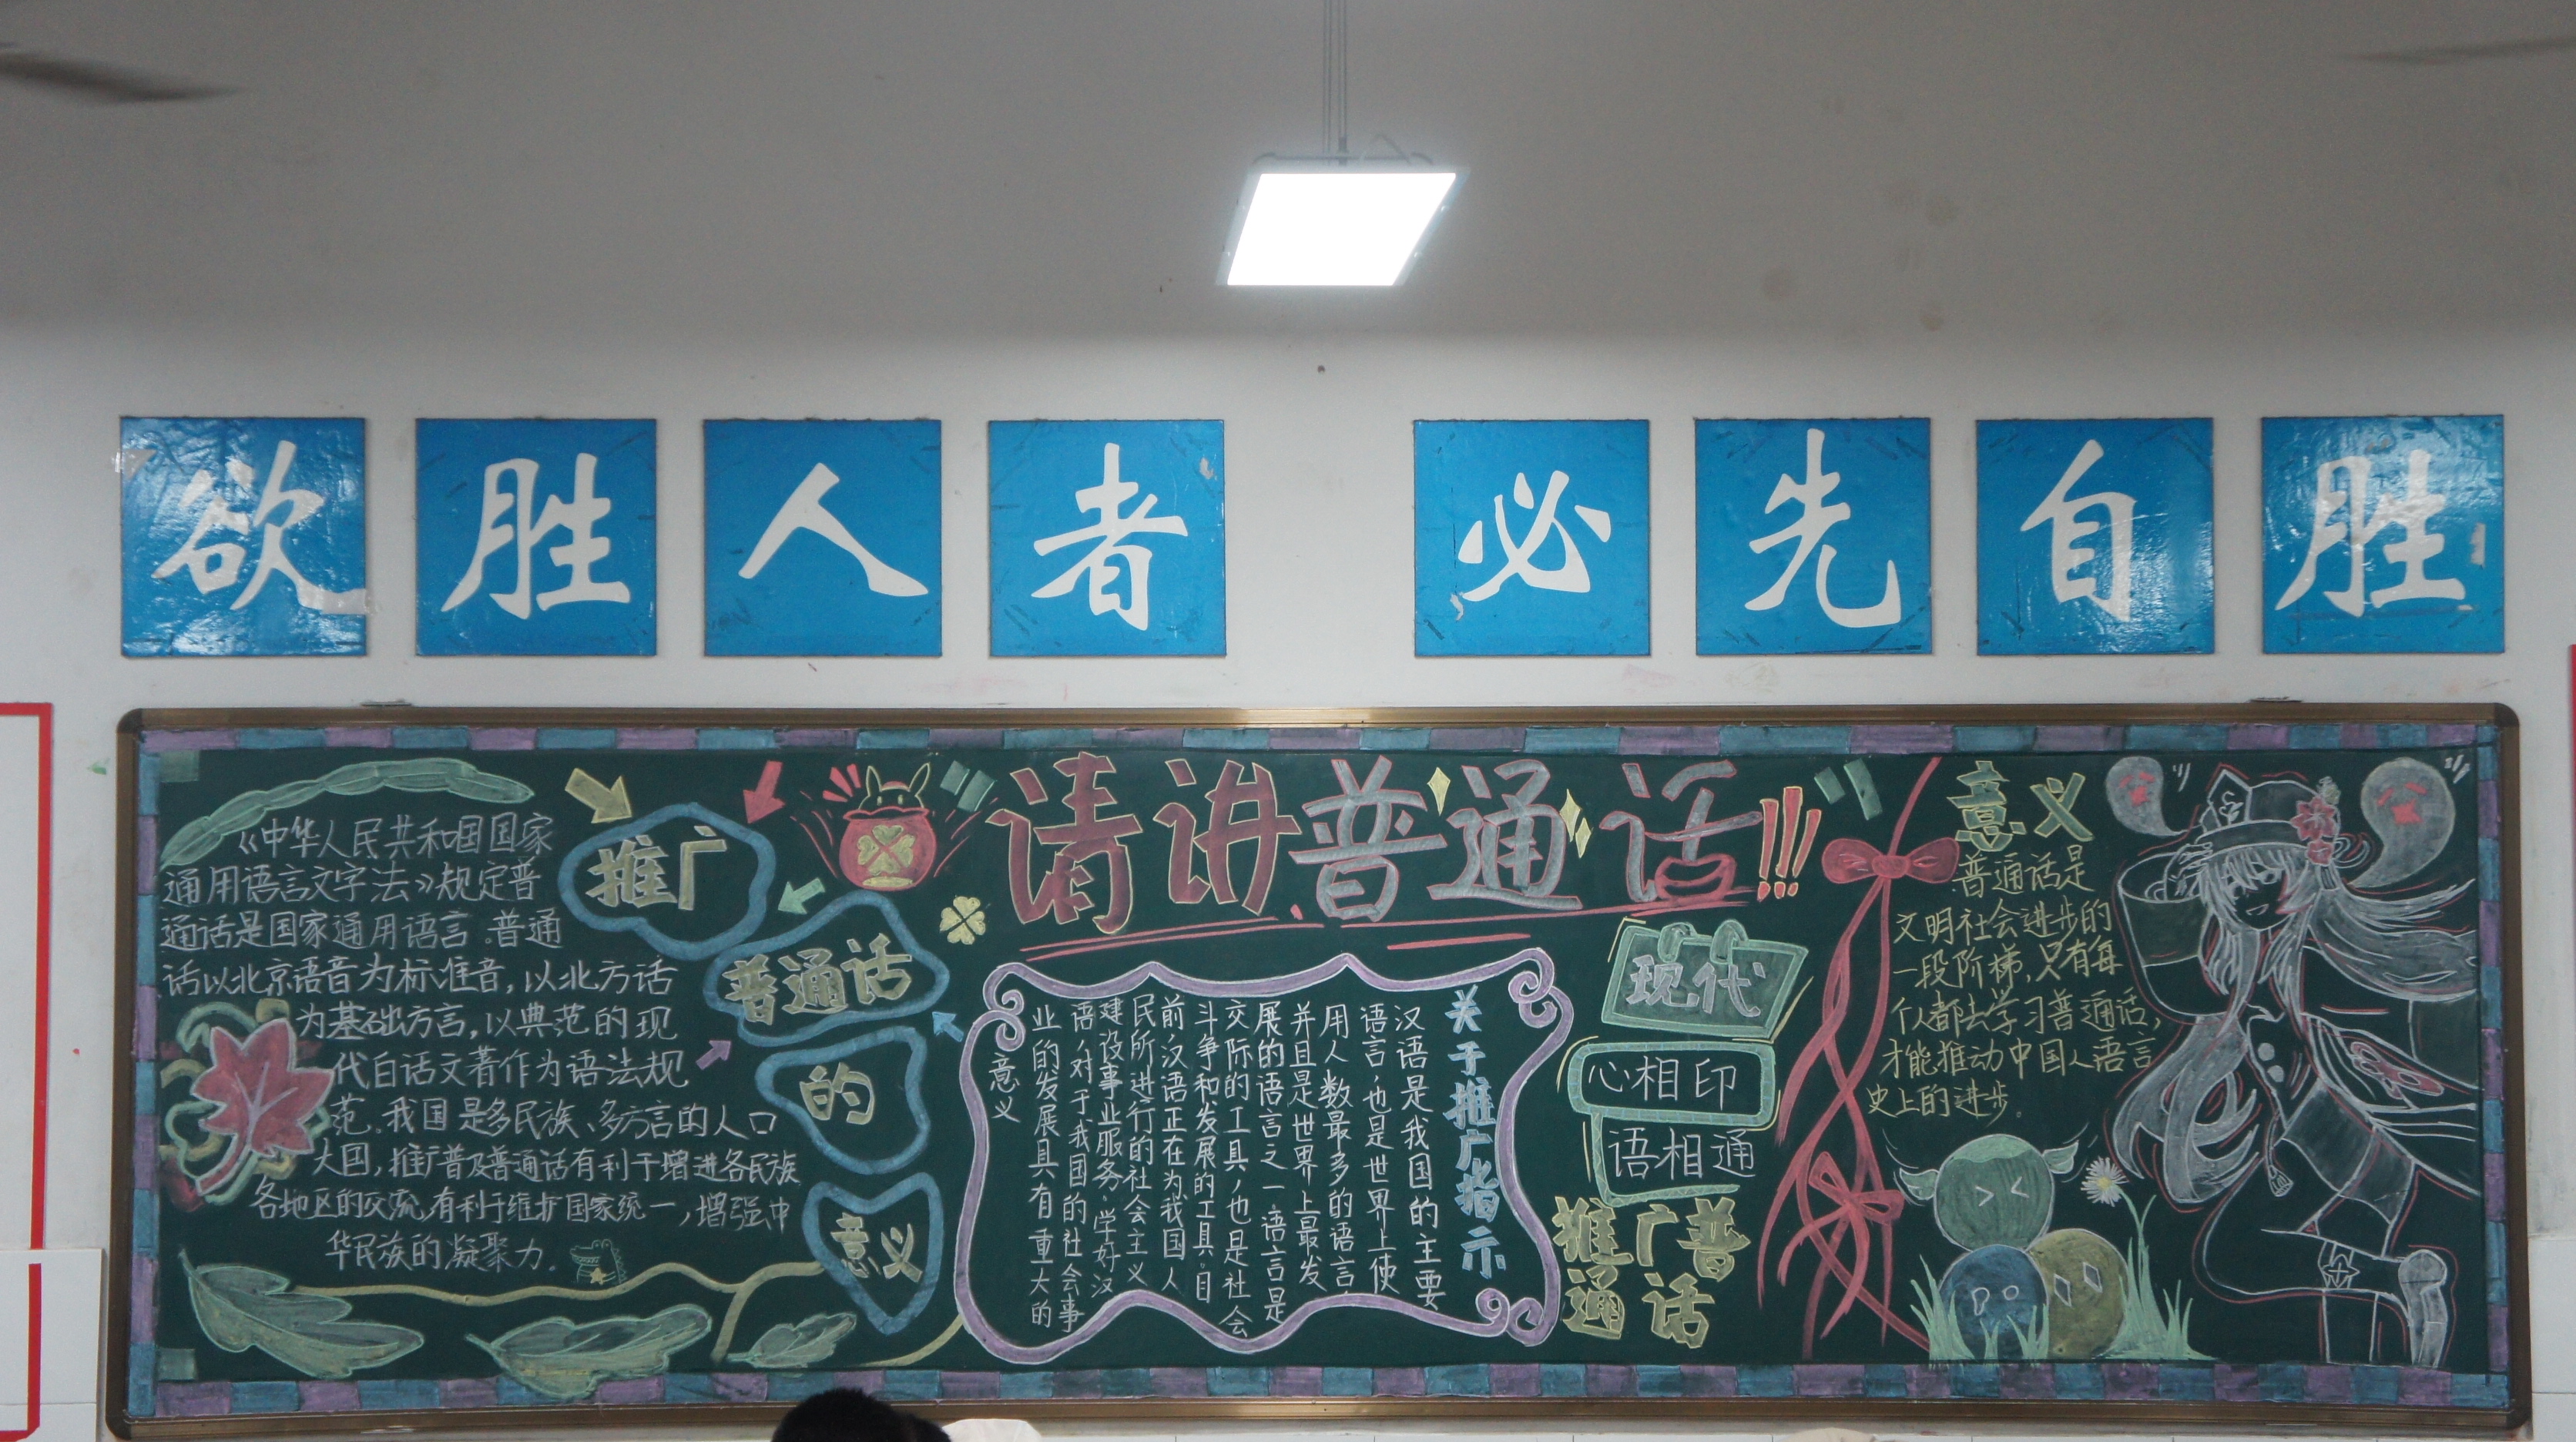 欲胜人者 必先自胜
请讲普通话!!!
《中华人民共和国国家
通用语言文字法》规定普
通话是国家通用语言.普通
话以北京语音为标准音,以北方话
为基础方言,以典范的现
代白话文著作为语法规
范.我国是多民族、多方言的人口
大国,推广普及普通话有利于增进各民族
各地区的交流,有利于维护国家统一,增强中
华民族的凝聚力.
推广
普通话
的
意义
关于推广指示
汉语是我国的主要
语言,也是世界上使
用人数最多的语言,
并且是世界上最发
展的语言之一.语言是
交际的工具,也是社会
斗争和发展的工具.目
前,汉语正在为我国人
民所进行的社会主义
建设事业服务.学好汉
语,对于我国的社会事
业的发展具有重大的
意义
现代
心相印
语相通
推广普
通话
意义
普通话是
文明社会进步的
一段阶梯,只有每
个人都去学习普通话,
才能推动中国人语言
史上的进步。